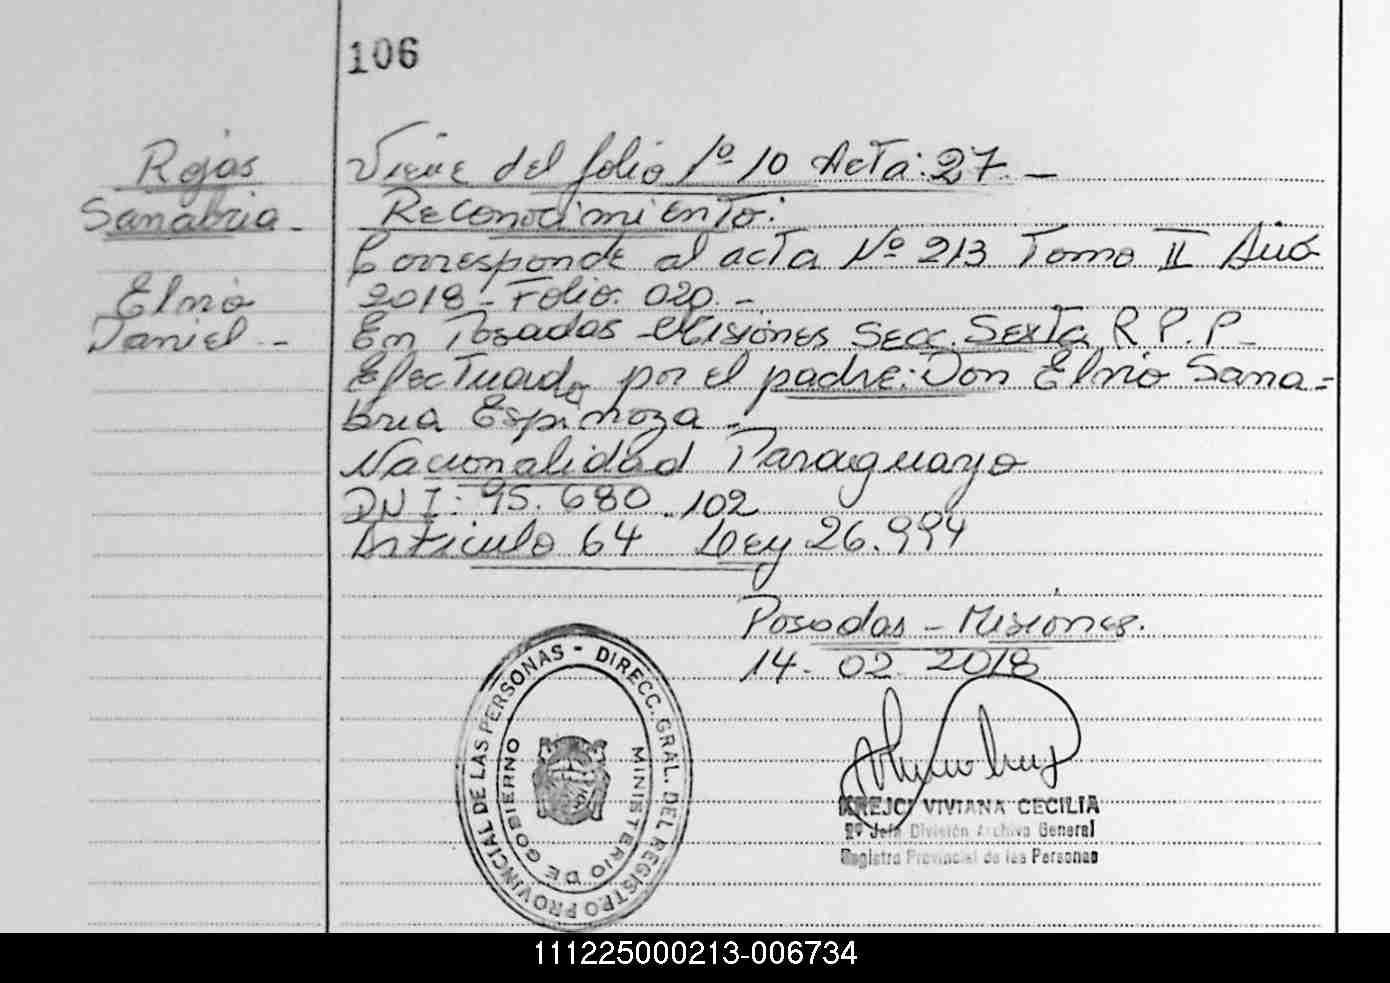 106
Rojas
Sanabria -
Elnio
Daniel -
Viene del folio Nº 10 Acta: 27. -
Reconocimiento:
Corresponde al acta Nº 213 Tomo II Año
2018 - Folio: 020. -
En Posadas Misiones Secc. Sexta R.P.P -
Efectuado por el padre: Don Elnio Sana-
bria Espinoza -
Nacionalidad Paraguayo
DNI: 95.680.102
Artículo 64 Ley 26.994
Posadas - Misiones.
14-02-2018
DIRECC. GRAL. DEL REGISTRO PROVINCIAL DE LAS PERSONAS -
MINISTERIO DE GOBIERNO
KREJCI VIVIANA CECILIA
2º Jefa División Archivo General
Registro Provincial de las Personas
111225000213-006734